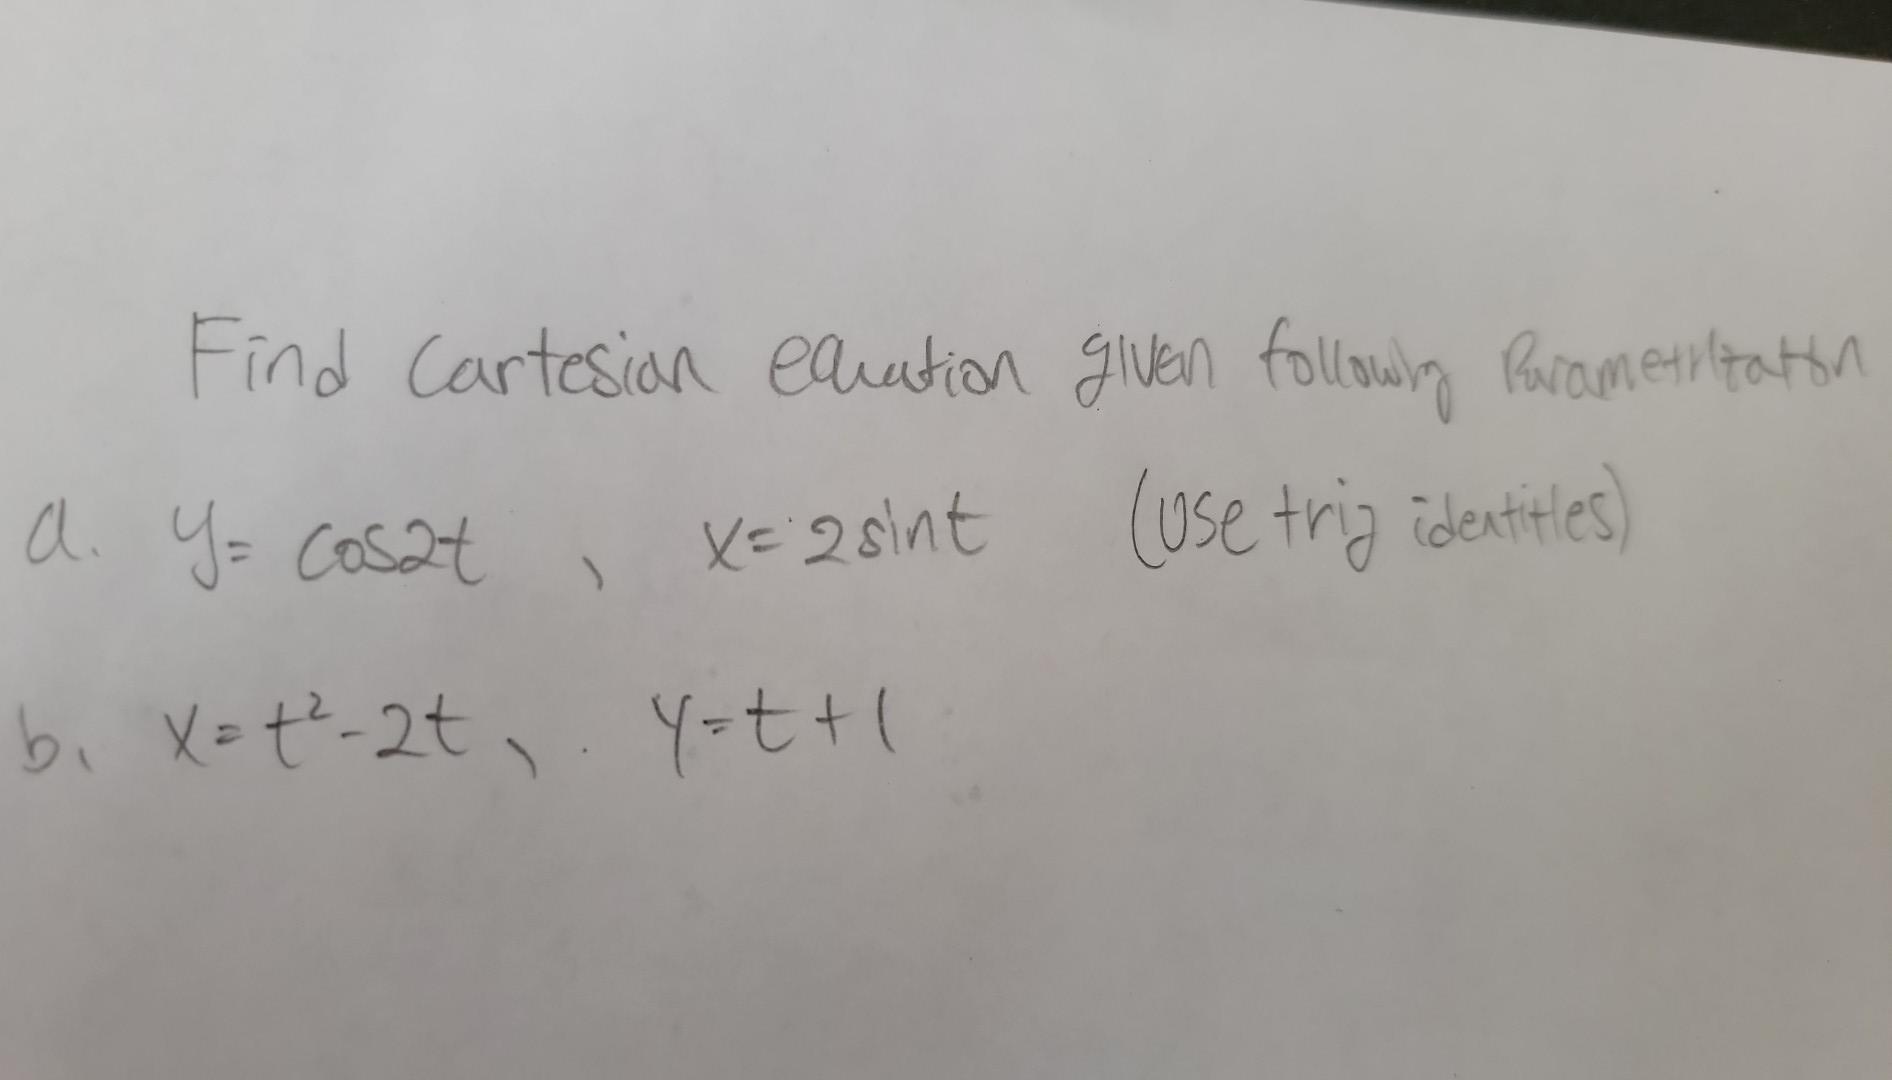 Find Cartesian equation given following Parametrization
a. y = cos2t , x = 2sint (Use trig identities)
b. x = t² - 2t , y = t + 1